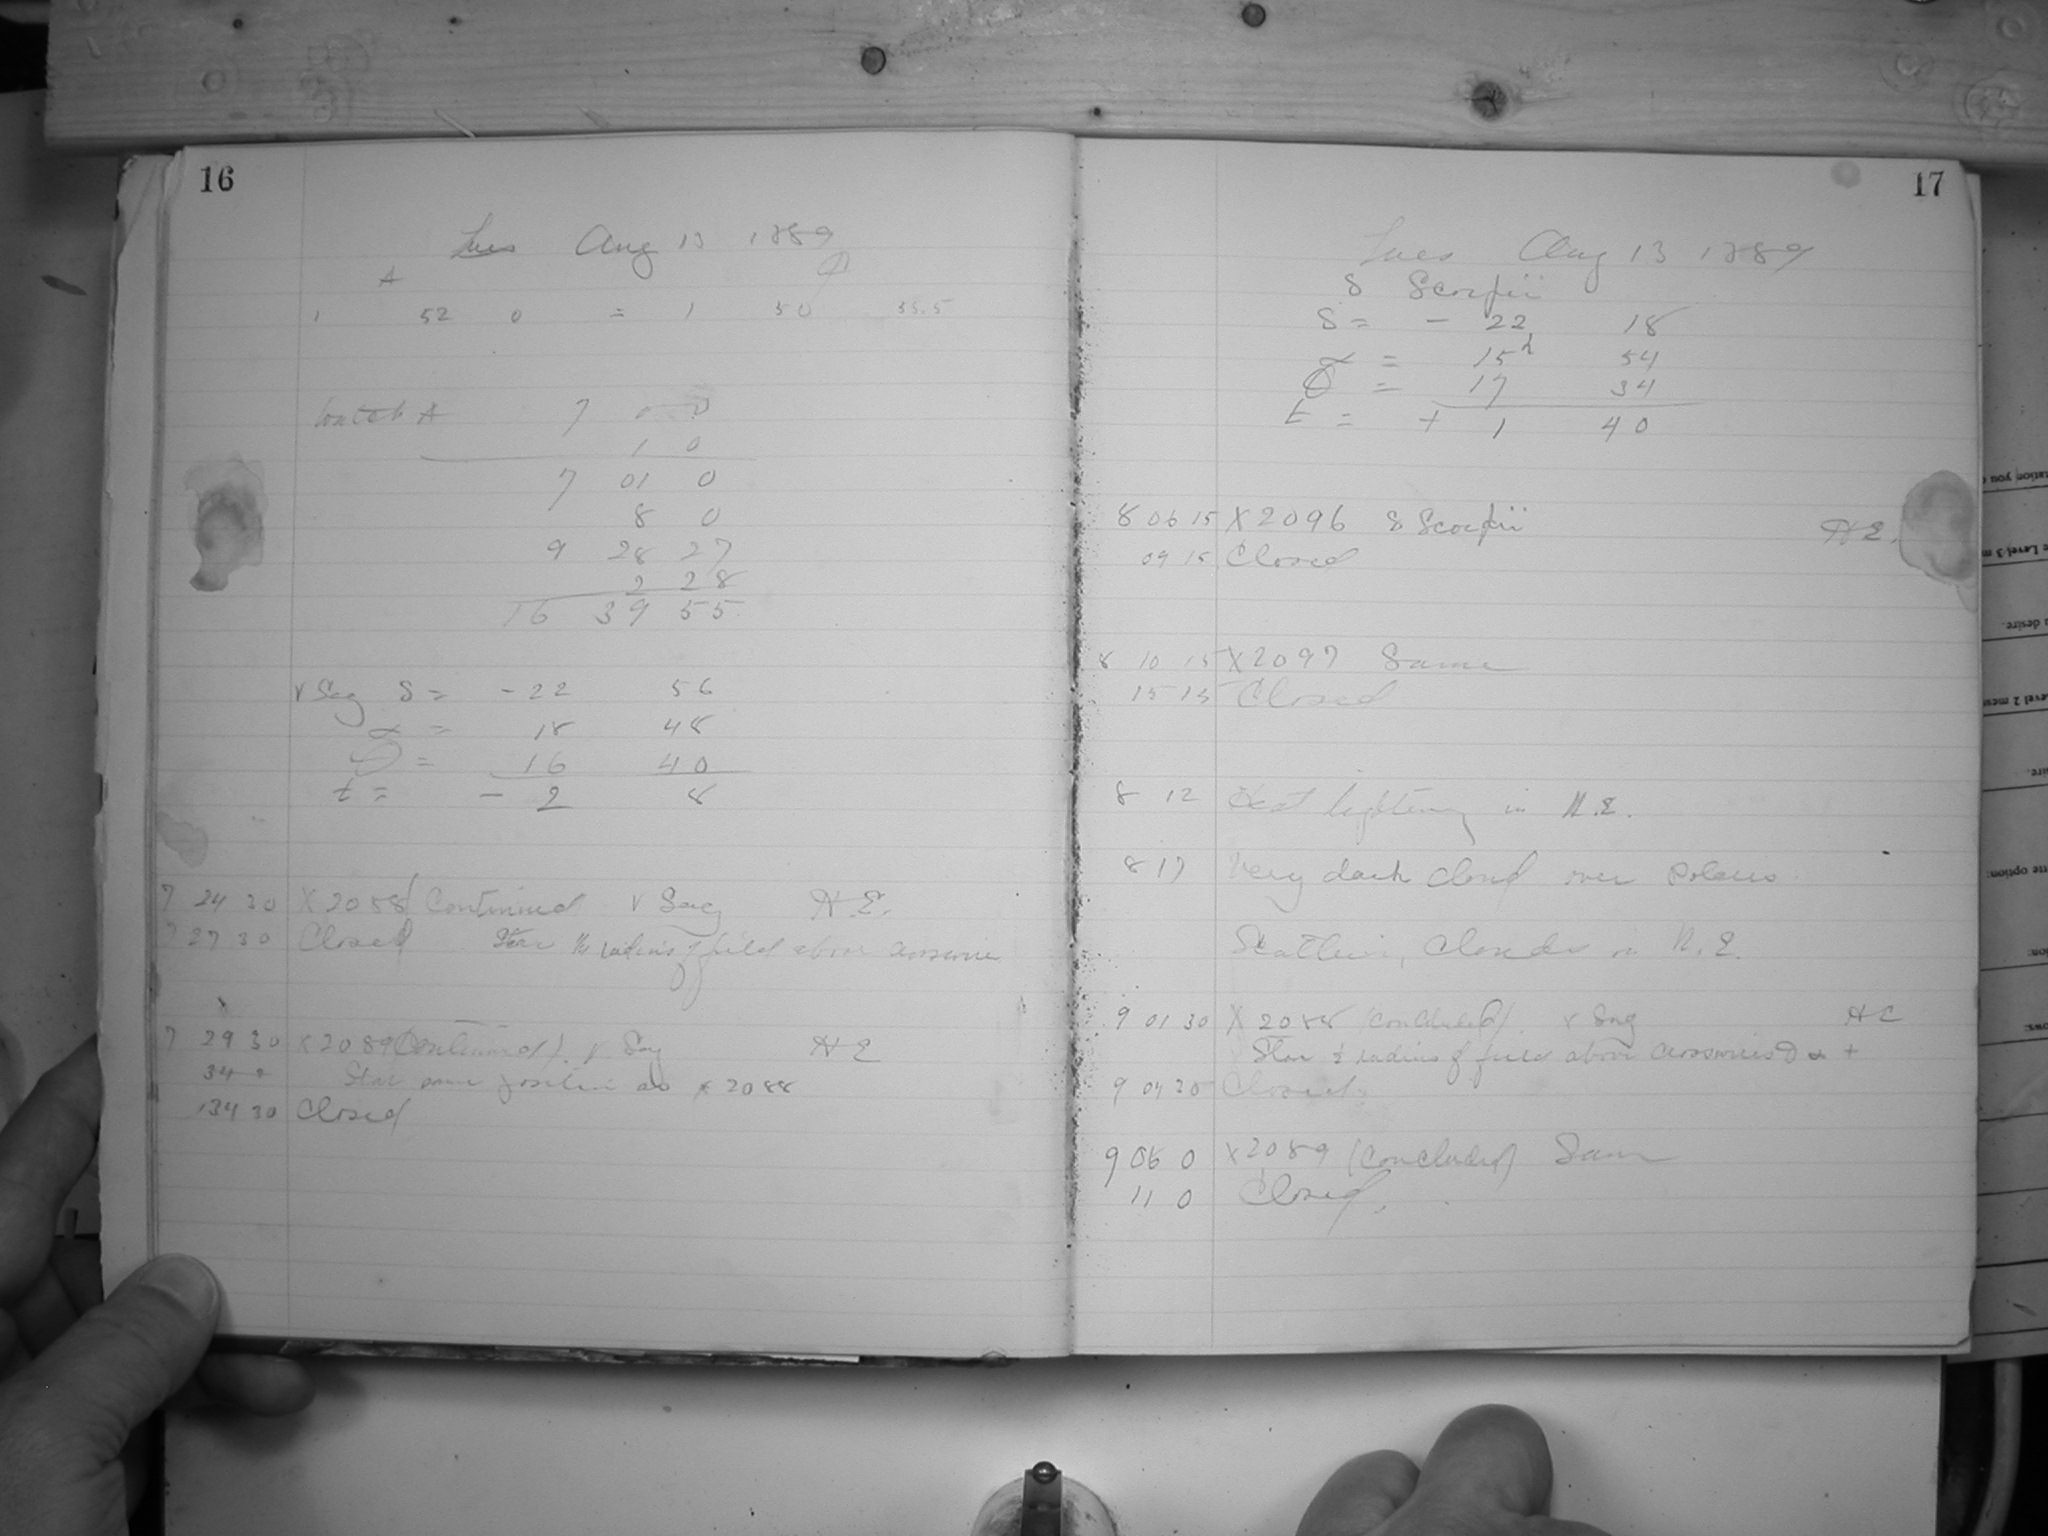 16
Tues Aug 13 1889
A
1 52 0 = 1 50 33.5
Watch A 7 0 0
1 0
7 01 0
8 0
9 28 27
2 28
16 39 55
ν Sag δ = - 22 56
α = 18 48
= 16 40
t = - 2 8
7 24 30 X2088 (Continued ν Sag H.E.
7 27 30 Closed Star radius of field above crosswire
7 29 30 X2089 (Continued). ν Sag H E
34 Star same position as X2088
34 30 Closed
17
Tues Aug 13 1889
δ Scorpii
δ = - 22 18
α = 15h 54
= 17 34
t = + 1 40
8 06 15 X2096 δ Scorpii H E.
09 15 Closed
8 10 15 X2097 Same
15 15 Closed
8 12 Heat lightning in N.E.
8 17 Very dark cloud over Polaris.
Clouds in N.E.
9 01 30 X2088 (concluded). ν Sag H E
Star ½ radius of field above crosswires
9 04 30 Closed.
9 06 0 X2089 (concluded) Same
11 0 Closed.